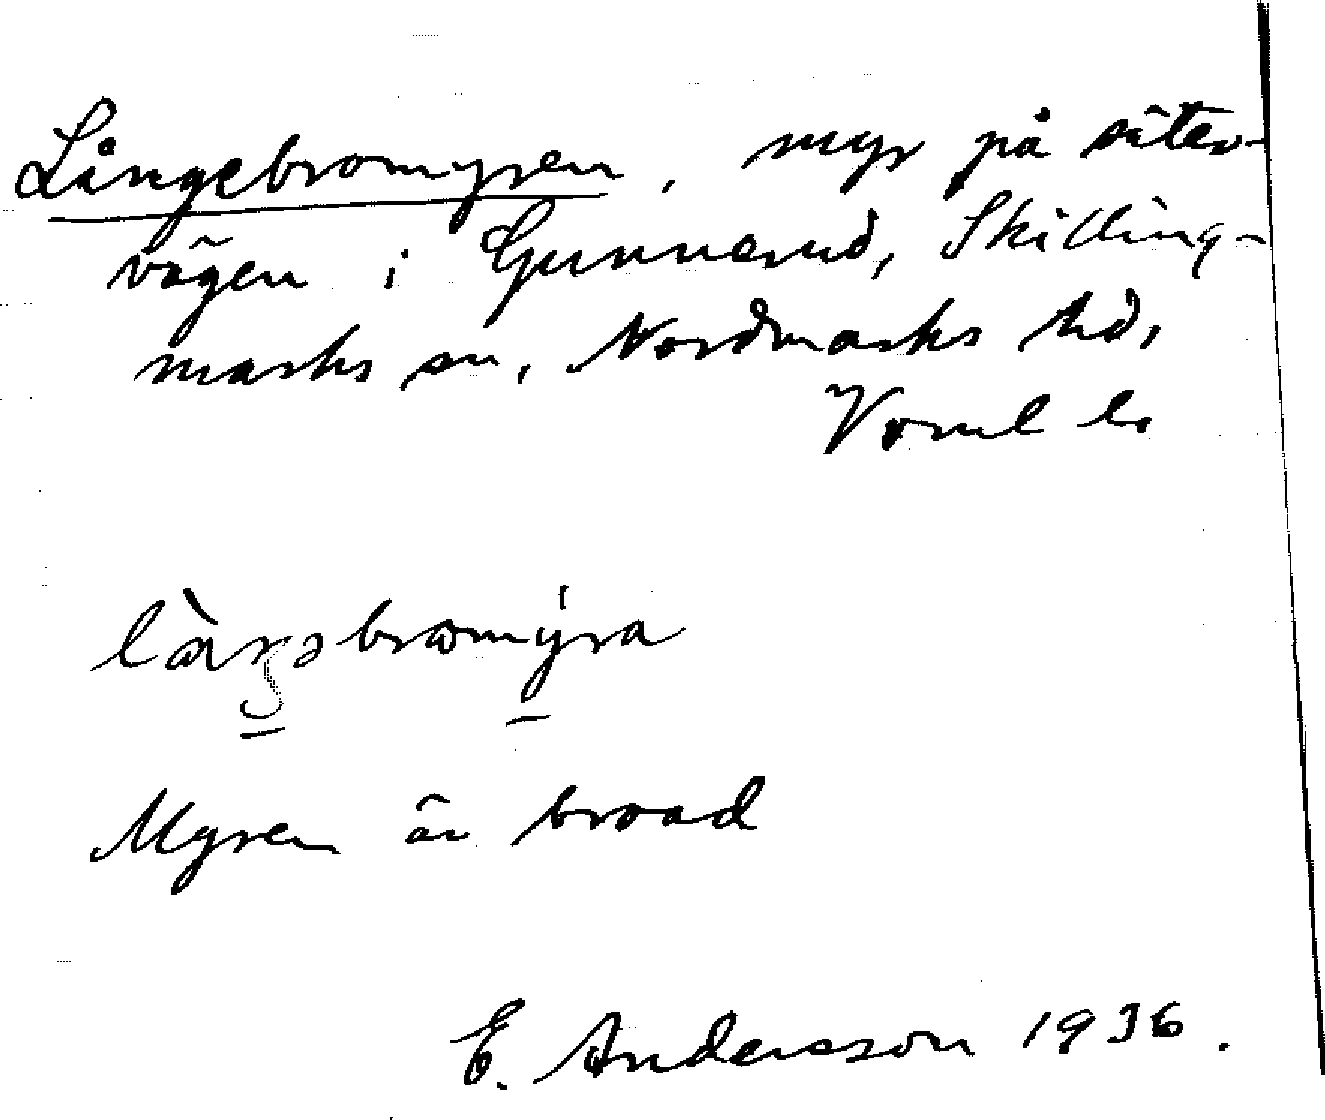 Långebromyren, myr på säter-
vägen i Gunnerud, Skilling-
marks sn, Nordmarks hd,
Vrml l.
bromýra
Myren är broad
E. Andersson 1936.